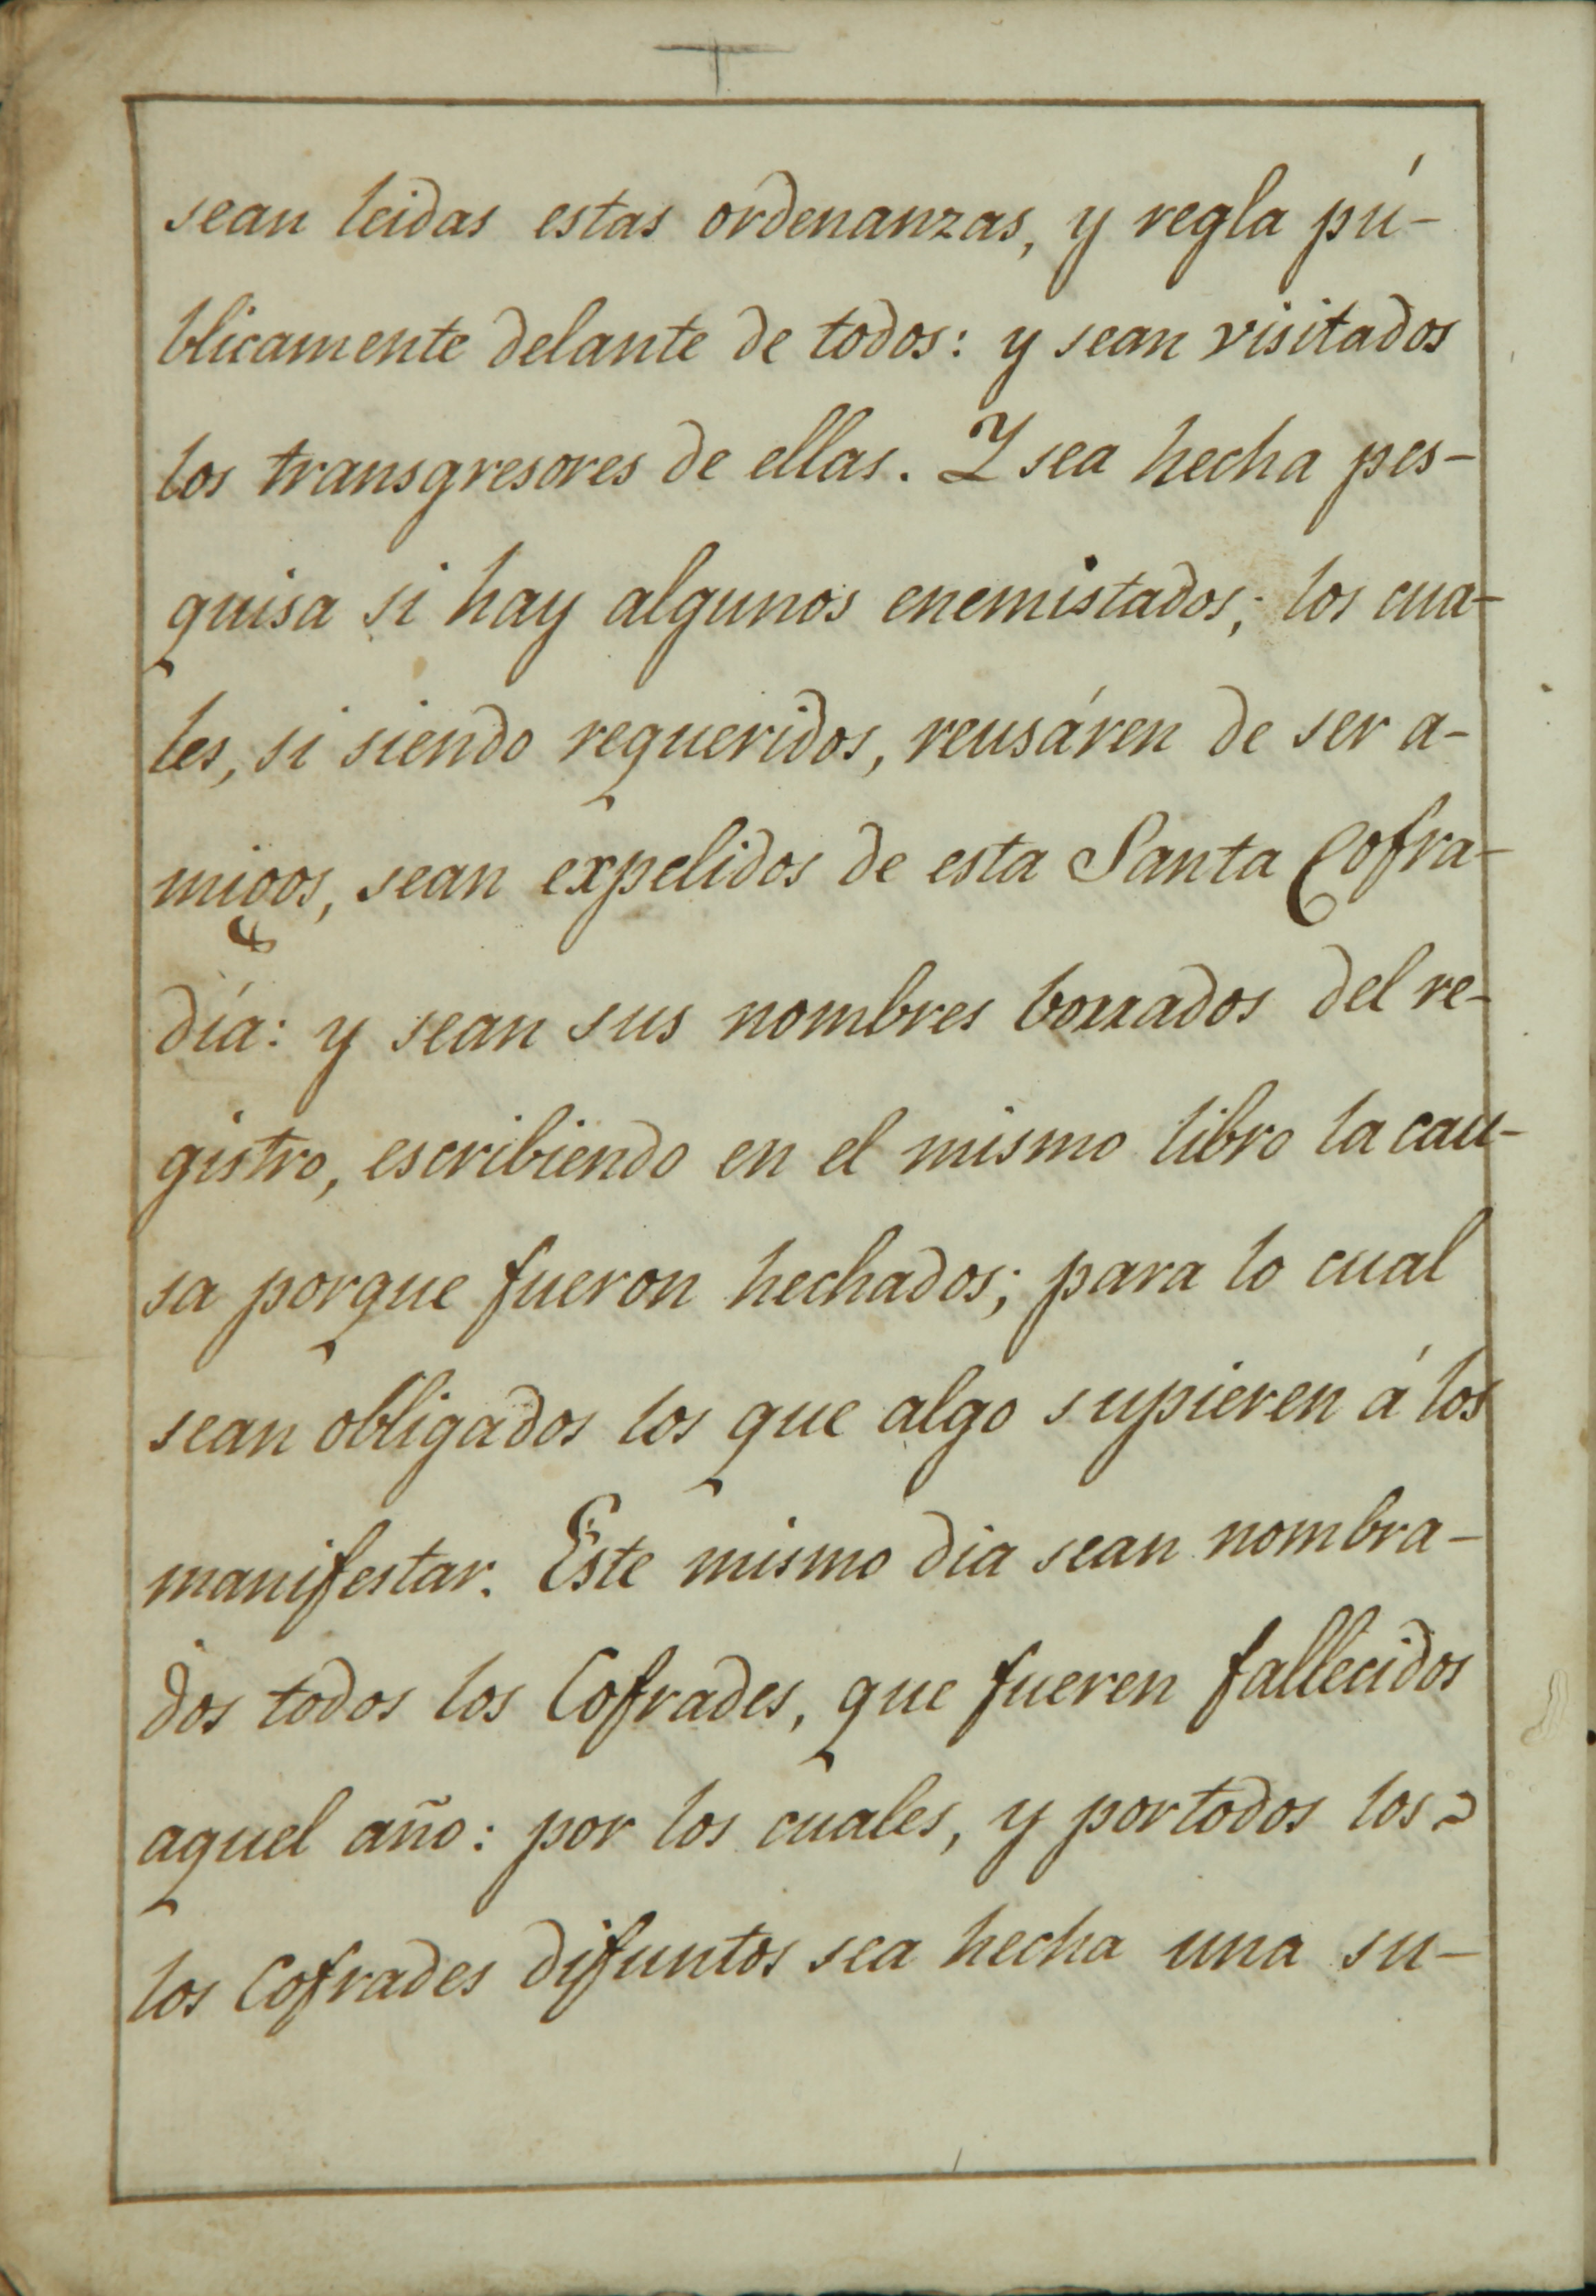 sean leidas estas ordenanzas, y regla pú-
blicamente delante de todos: y sean visitados
los transgresores de ellas. Y sea hecha pes-
quisa si hay algunos enemistados; los cua-
les, si siendo requeridos, reusáren de ser a-
migos, sean expelidos de esta Santa Cofra-
día: y sean sus nombres borrados del re-
gistro, escribiendo en el mismo libro la cau-
sa porque fueron hechados; para lo cual
sean obligados los que algo supieren á los
manifestar. Este mismo dia sean nombra-
dos todos los Cofrades, que fueren fallecidos
aquel año: por los cuales, y por todos los
los Cofrades difuntos sea hecha una su-